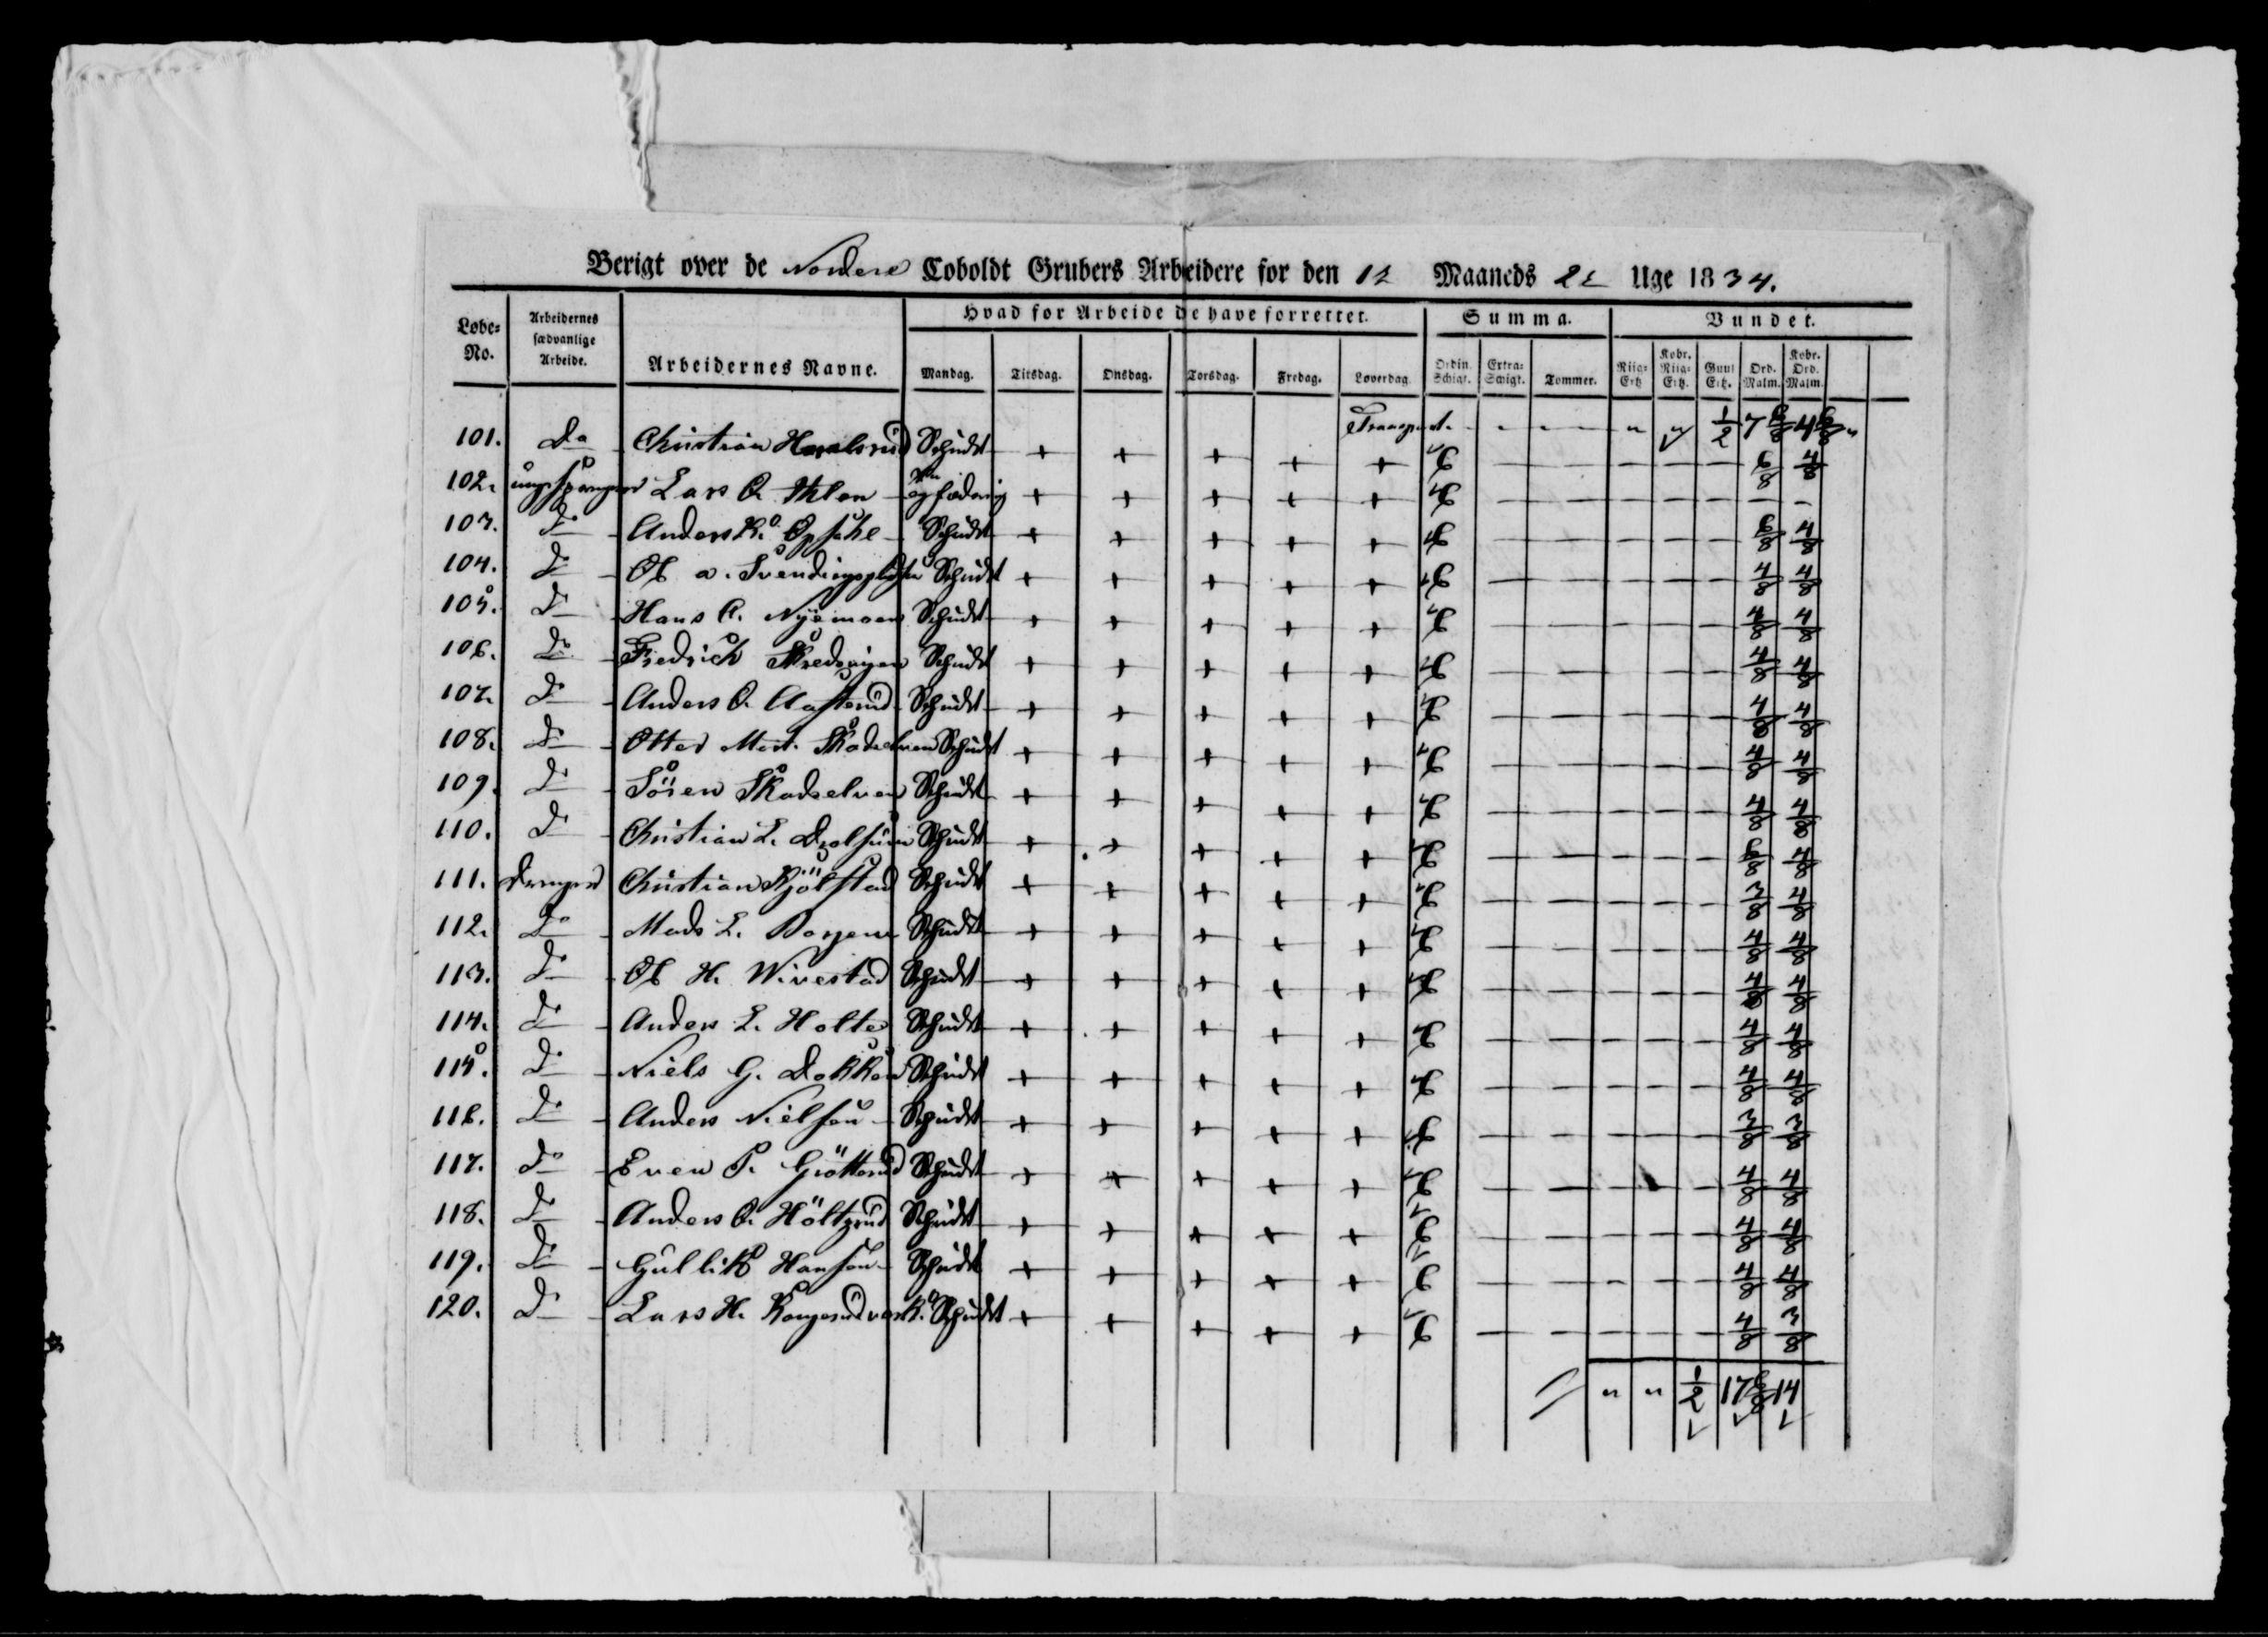 Berigt over de Nordere Coboldt Grubers Arbeidere for den 12 Maaneds 2 Uge 1834.
Løbe-No. Arbeidernes sædvanlige Arbeide. Arbeidernes Navne. Hvad for Arbeide de have forrettet. Summa. Vundet.
Mandag. Tirsdag. Onsdag. Torsdag. Fredag. Løverdag. Ordin. Schigt. Extra-Schigt. Tommer. Riig-Ertz Kobr. Riig-Ertz. Guul Ertz. Ord. Malm. Kobr. Ord. Malm.
Transport. - - - " " 1/2 7 6/8 4 6/8 "
101. Do Christian Schudt + + + + + 6 — — — — — 6/8 4/8
102. Lars O. + + + + + 6 — — — — — — —
103. Do Anders Opsahl Schudt + + + + + 6 — — — — — 6/8 4/8
104. Do Ol a. Svendingspladsen Schudt + + + + + 6 — — — — — 4/8 4/8
105. Do Hans A. Nyemoen Schudt + + + + + 6 — — — — — 4/8 4/8
106. Do Fredrich Schudt + + + + + 6 — — — — — 4/8 4/8
107. Do Anders O. Aasterud Schudt + + + + + 6 — — — — — 4/8 4/8
108. Do Otter Mort. Skadselven Schudt + + + + + 6 — — — — — 4/8 4/8
109. Do Sören Skadselven Schudt + + + + + 6 — — — — — 4/8 4/8
110. Do Christian L. Drolsum Schudt + + + + + 6 — — — — — 6/8 4/8
111. Drenger Christian Kjölstad Schudt + + + + + 6 — — — — — 3/8 4/8
112. Do Mads L. Borgen Schudt + + + + + 6 — — — — — 4/8 4/8
113. Do Ol H. Wivestad Schudt + + + + + 6 — — — — — 4/8 4/8
114. Do Anders L. Holte Schudt + + + + + 6 — — — — — 4/8 4/8
115. Do Niels G. Dokken Schudt + + + + + 6 — — — — — 4/8 4/8
116. Do Anders Nielsen Schudt + + + + + 6 — — — — — 3/8 3/8
117. Do Even P. Gröttorud Schudt + + + + + 6 — — — — — 4/8 4/8
118. Do Anders O. Höltzrud Schudt + + + + + 6 — — — — — 4/8 4/8
119. Do Gullik Hansen Schudt + + + + + 6 — — — — — 4/8 4/8
120. Do Lars H. Schudt + + + + + 6 — — — — — 4/8 3/8
" " 1/2 17 6/8 14